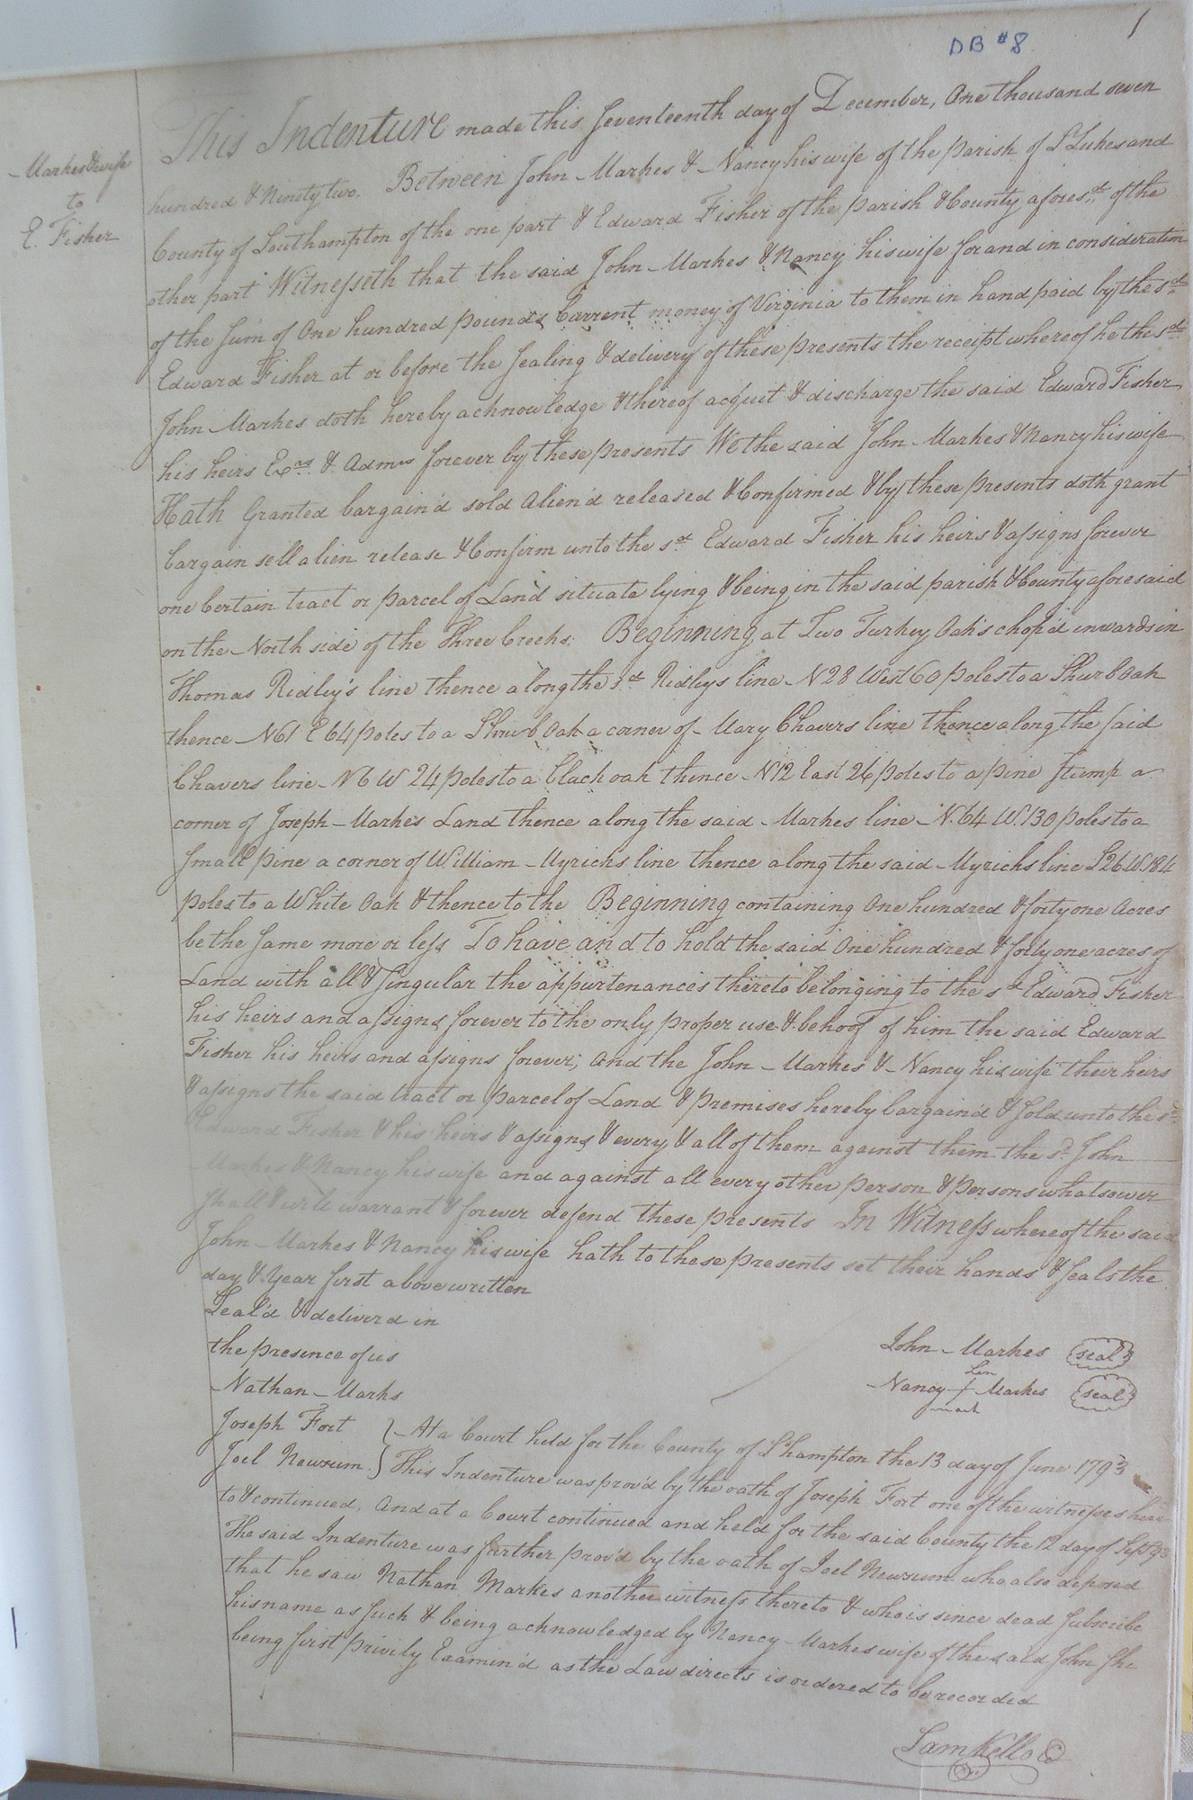 1
DB #8
Markes & wife
to
E. Fisher
This Indenture made this seventeenth day of December, One thousand seven
hundred & Ninety two. Between John Markes & Nancy his wife of the parish of St Lukes and
County of Southampton of the one part & Edward Fisher of the parish & County afores.d of the
other part Witnesseth that the said John Markes & Nancy his wife for and in consideration
of the Sum of One hundred pounds Current money of Virginia to them in hand paid by the sd
Edward Fisher at or before the sealing & delivery of these presents the receipt whereof he the sd
John Markes doth hereby acknowledge & thereof acquit & discharge the said Edward Fisher
his heirs Exrs & Admrs forever by these presents We the said John Markes & Nancy his wife
Hath Granted bargain'd sold Alien'd released & Confirmed & by these presents doth grant
bargain sell alien release & Confirm unto the sd Edward Fisher his heirs & assigns forever
one Certain tract or parcel of Land situate lying & being in the said parish & County aforesaid
on the North side of the Three Creeks. Beginning at Two Turkey Oak's chop'd inwards in
Thomas Ridley's line thence along the sd Ridleys line N 28 West 60 poles to a Shurb Oak
thence N61 E 64 poles to a Shrub Oak a corner of Mary Chavers line thence along the said
Chavers line N 6 W 24 poles to a black oak thence N12 East 26 poles to a pine stump a
corner of Joseph Markes Land thence along the said Markes line N. 64 W. 130 poles to a
small pine a corner of William Myricks line thence along the said Myricks line S26 W 184
poles to a White Oak & thence to the Beginning containing One hundred & forty one Acres
be the same more or less To have and to hold the said One hundred & forty one acres of
Land with all & singular the appurtenances thereto belonging to the sd Edward Fisher
his heirs and assigns forever to the only proper use & behoof of him the said Edward
Fisher his heirs and assigns forever; And the John Markes & Nancy his wife their heirs
& assigns the said tract or parcel of Land & premises hereby bargain'd & sold unto the sd
Edward Fisher & his heirs & assigns & every & all of them against them the sd John
Markes & Nancy his wife and against all every other person & persons whatsoever
shall & will warrant & forever defend these presents In Witness whereof the said
John Markes & Nancy his wife hath to these presents set their hands & seals the
day & Year first above written
Seal'd & deliverd in
the presence of us
John Markes (seal)
Nathan Marks
her
Nancy + Markes (seal)
mark
Joseph Fort
Joel Newsum
At a Court held for the County of S.hampton the 13 day of June 1793
This Indenture was prov'd by the oath of Joseph Fort one of the witnesses here
to & continued. And at a Court continued and held for the said County the 12 day of Sept 93
The said Indenture was further prov'd by the oath of Joel Newsum who also deposed
that he saw Nathan Markes another witness thereto & who is since dead subscribe
his name as such & being acknowledged by Nancy Markes wife of the said John she
being first privily Examin'd as the Law directs is ordered to be recorded
Sam Kello C